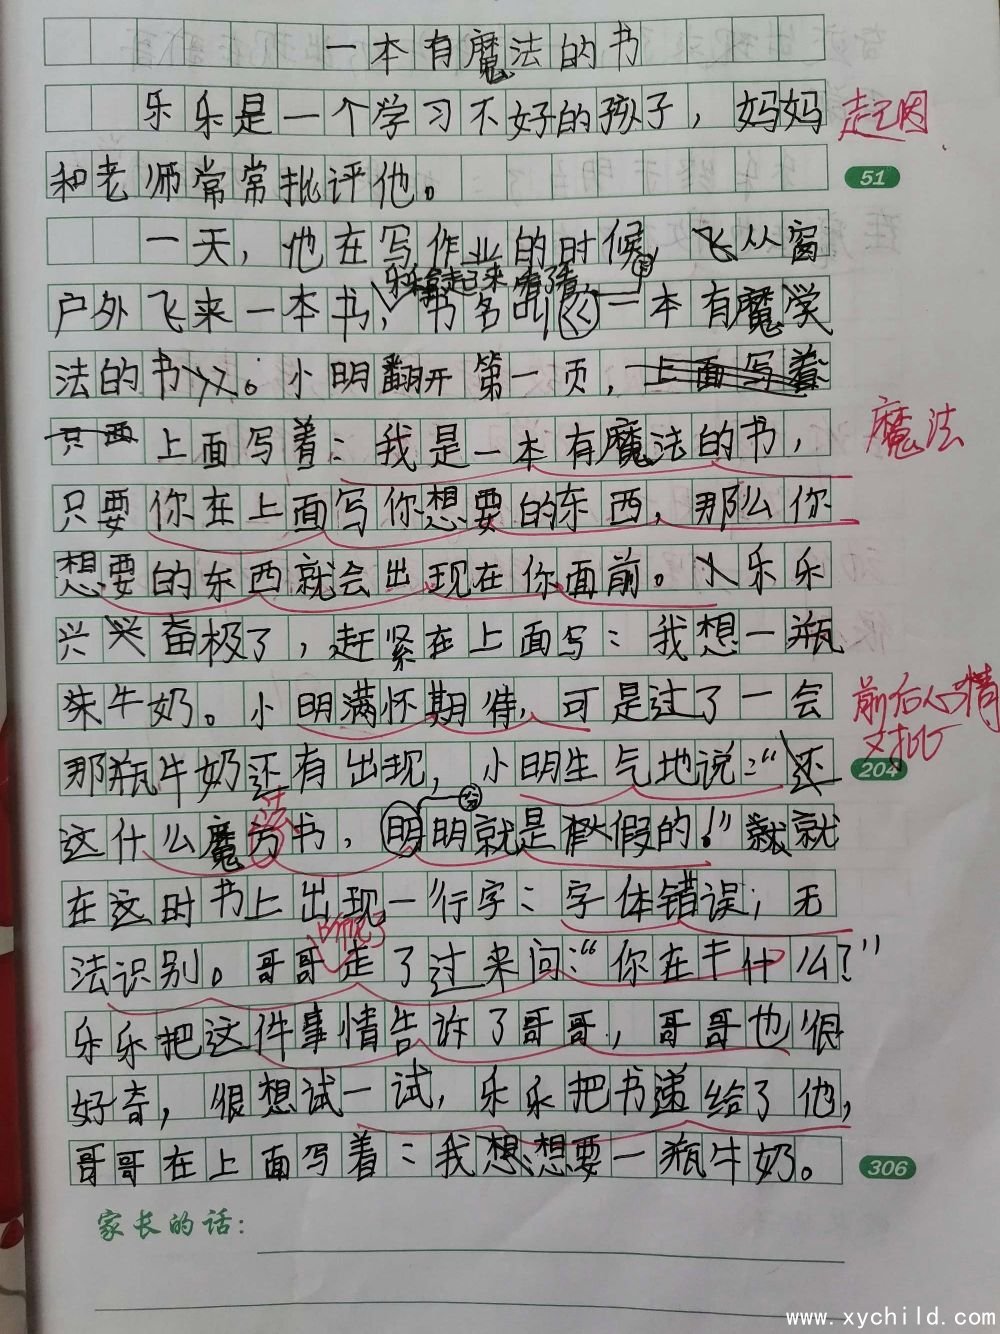 一本有魔法的书
乐乐是一个学习不好的孩子，妈妈
起因
和老师常常批评他。
51
一天，他在写作业的时候，飞从窗
乐乐拿起来看了看
户外飞来一本书，书名叫《一本有魔学
法的书》。小明翻开第一页，上面写着
只要上面写着：我是一本有魔法的书，
魔法
只要你在上面写你想要的东西，那么你
想要的东西就会出现在你面前。乐乐
兴兴奋极了，赶紧在上面写：我想一瓶
牛奶。小明满怀期待，可是过了一会
前后心情
对比
那瓶牛奶还有出现，小明生气地说：“还
204
这什么魔方书，明明就是假的！”就就
在这时书上出现一行字：字体错误，无
法识别。哥哥走了过来问：“你在干什么？”
乐乐把这件事情告诉了哥哥，哥哥也很
好奇，很想试一试，乐乐把书递给了他，
哥哥在上面写着：我想想要一瓶牛奶。
306
家长的话：
www.xychild.com